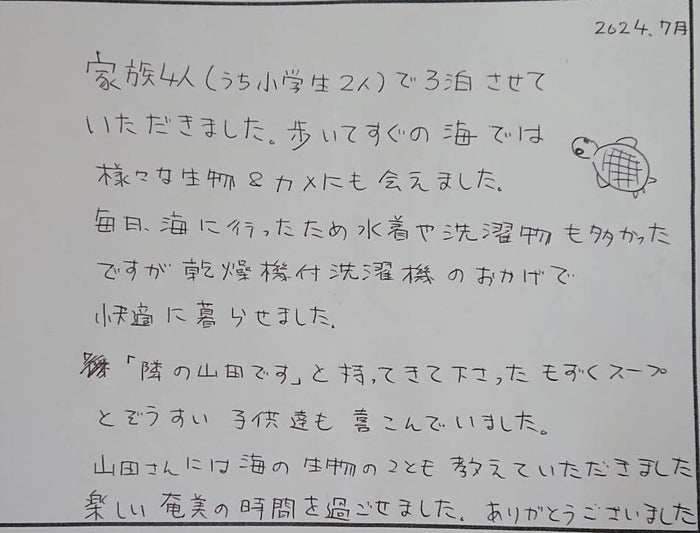 2024.7月
家族4人(うち小学生2人)で3泊させて
いただきました。歩いてすぐの海では
様々な生物&カメにも会えました。
毎日、海に行ったため水着や洗濯物も多かった
ですが乾燥機付洗濯機のおかげで
快適に暮らせました。
「隣の山田です」と持ってきて下さったもずくスープ
とぞうすい子供達も喜こんでいました。
山田さんには海の生物のことも教えていただきました
楽しい奄美の時間を過ごせました。ありがとうございました